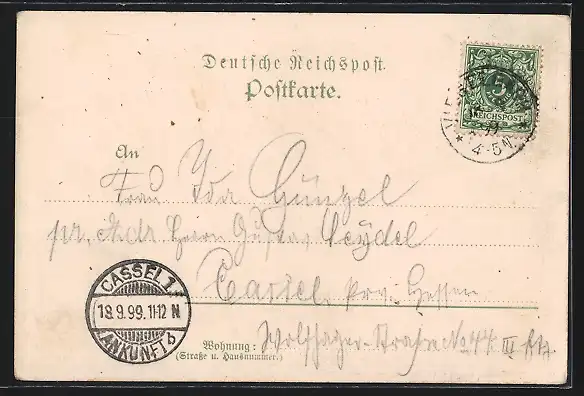 Deutsche Reichspost.
Postkarte.
5
REICHSPOST
99
* 4-5N. *
An
Frau Ida Günzel
pr. Adr Herrn Gustav Seydel
Cassel, prv. Hessen
CASSEL 1
18.9.99.11-12 N
ANKUNFT b
Wohnung: Wolfhager-Straße No 44 III
(Straße u. Hausnummer.)